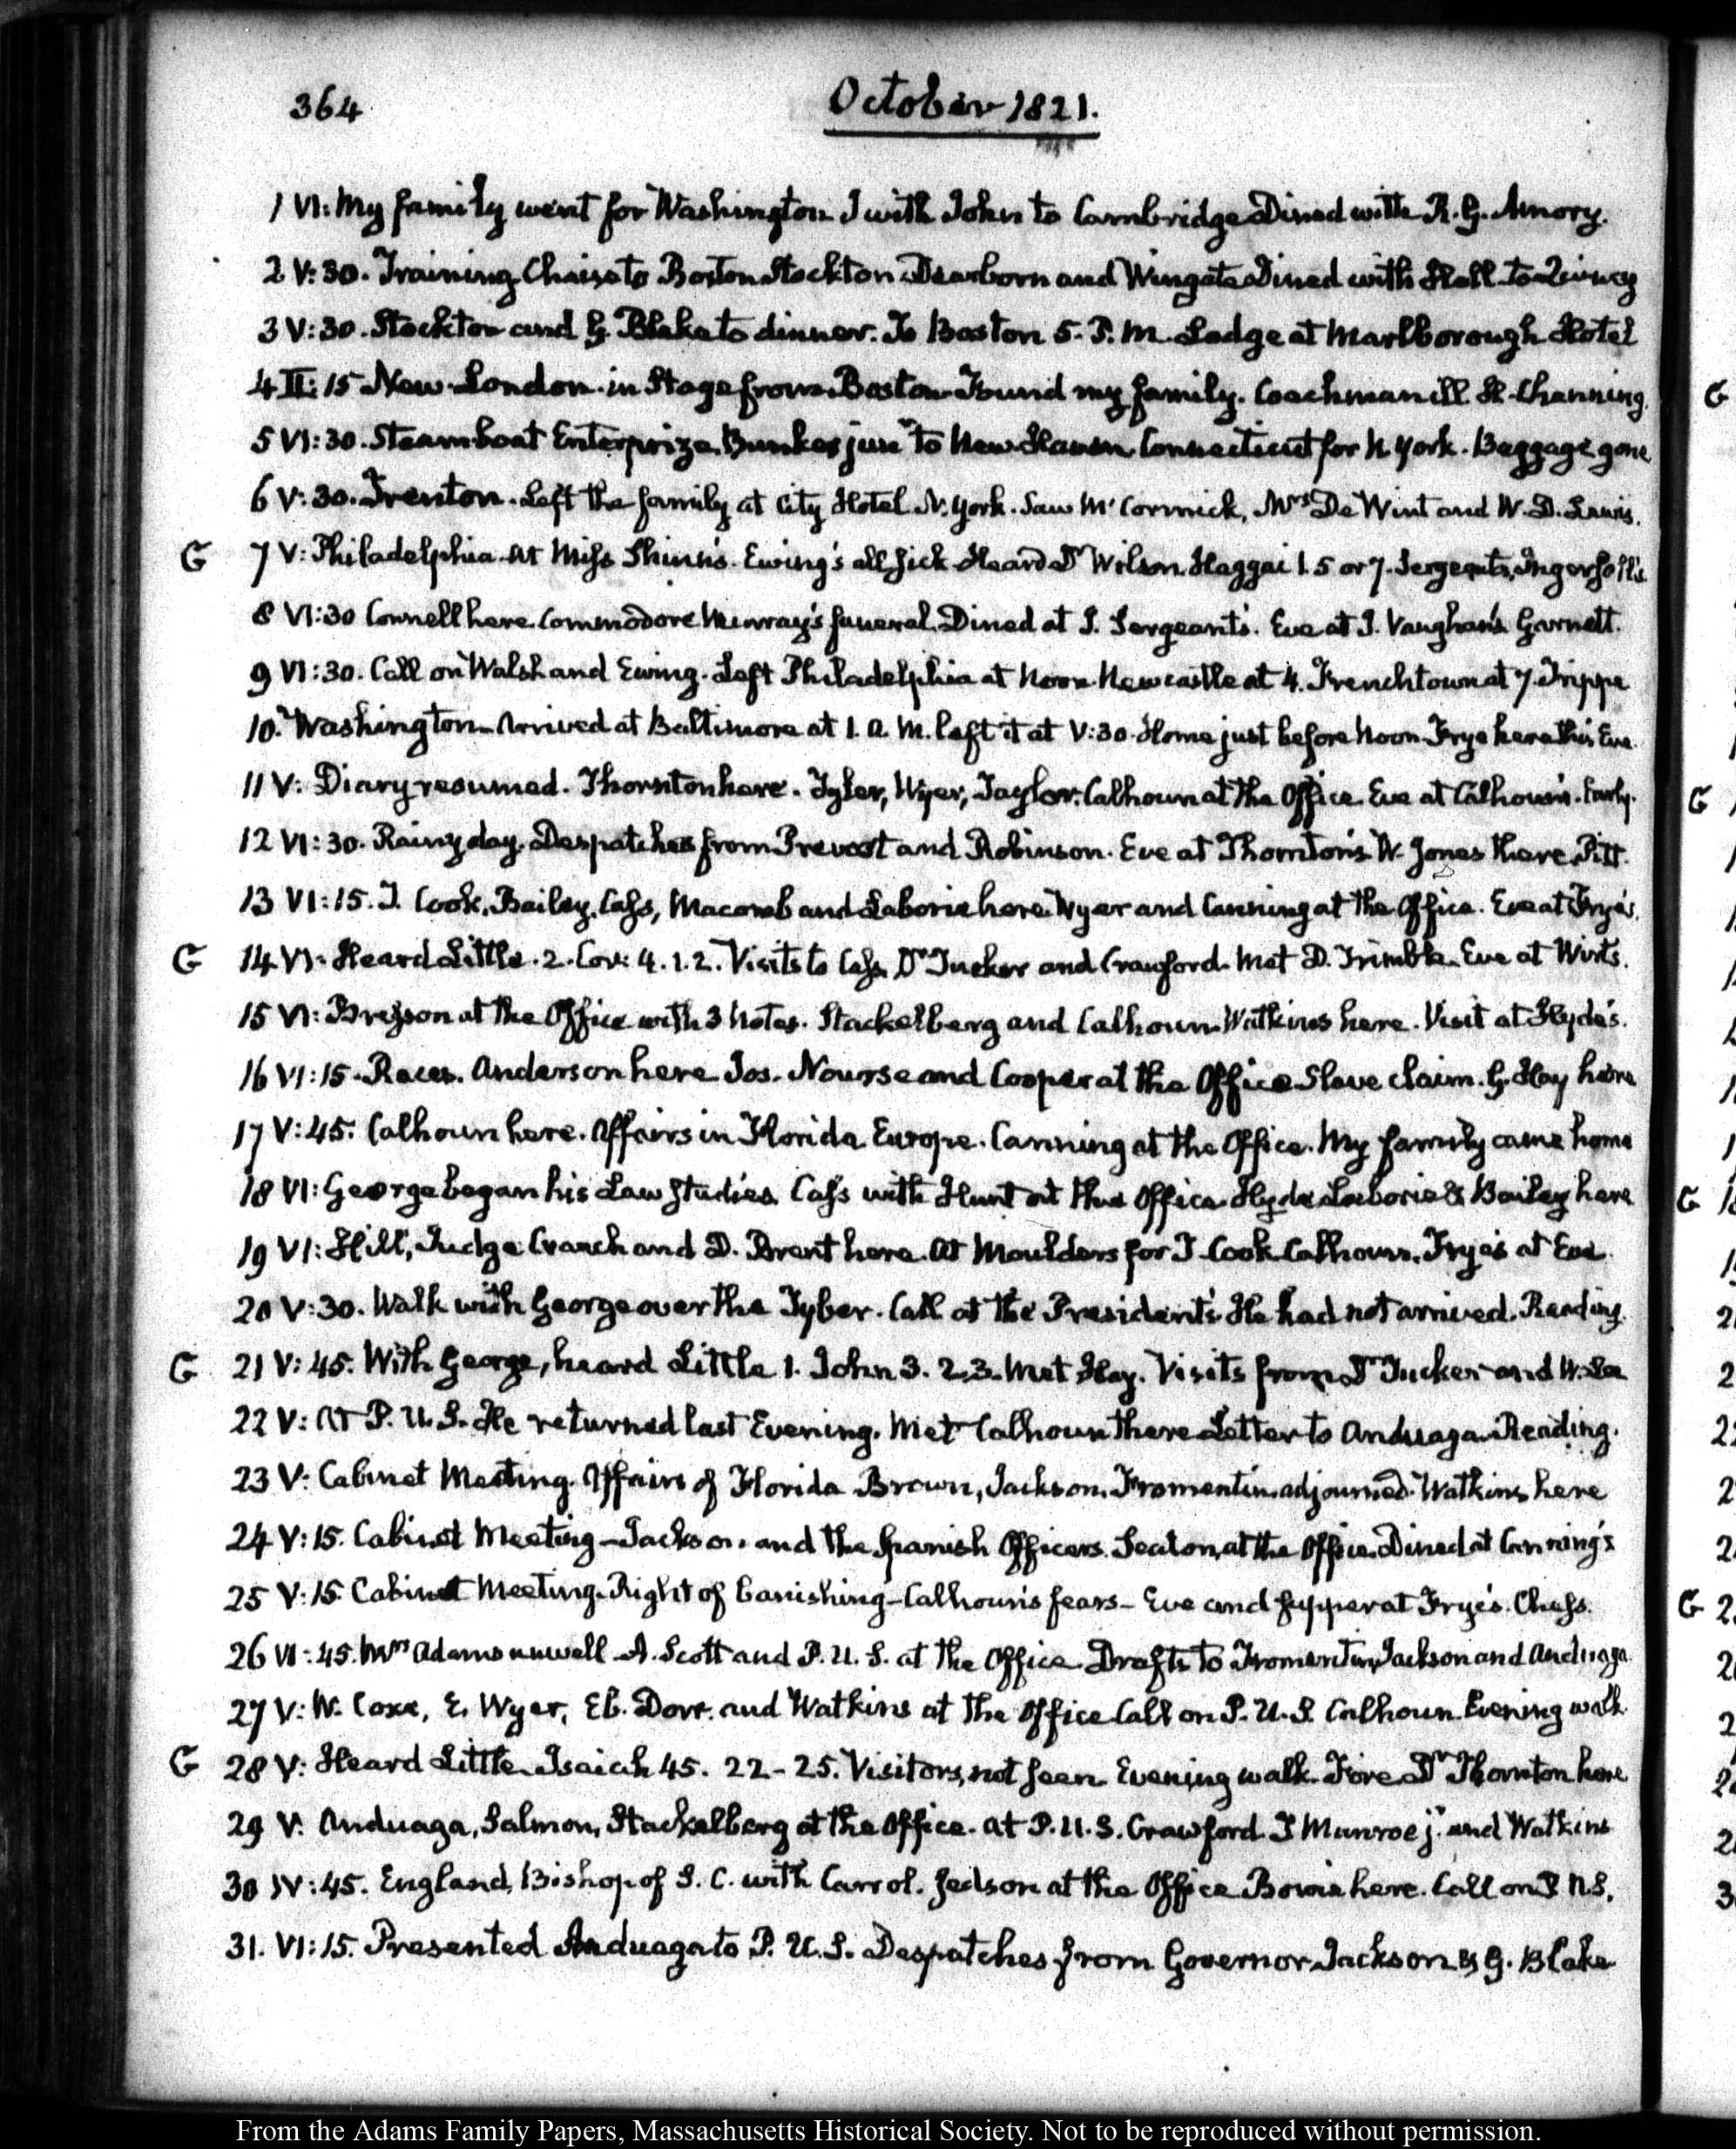 364
October 1821.
1 VI: My family went for Washington I with John to Cambridge Dined with R. G. Amory.
2 V:30. Training Chaise to Boston Stockton Dearborn and Wingate Dined with Hall To Quincy
3 V:30. Stockton and G. Blake to dinner. To Boston 5. P.M. Lodge at Marlborough Hotel
4 II:15 New London in Stage from Boston Found my family. Coachman ill H. Channing.
5 VI:30. Steamboat Enterprize. Bunker junr to New Haven. Connecticut for N York. Baggage gone
6 V:30. Trenton. Left the family at City Hotel N. York. Saw McCormick, Mrs De Wint and W. D. Lewis.
G 7 V: Philadelphia at Miss Shinn's. Ewing's all sick Heard Dr Wilson. Haggai 1. 5 or 7. Sergeants, Ingersoll's
8 VI:30 Connell here. Commodore Murray's funeral. Dined at J. Sergeant's. Eve at J. Vaughan's Garnett.
9 VI:30. Call on Walsh and Ewing. Left Philadelphia at Noon Newcastle at 4. Frenchtown at 7. Trippe
10. Washington Arrived at Baltimore at 1. A. M. left it at V:30. Home just before Noon Frye here this Eve.
11 V: Diary resumed. Thornton here. Tyler, Wyer, Taylor. Calhoun at the Office. Eve at Calhoun's. Early.
12 VI:30. Rainy day. Despatches from Prevost and Robinson. Eve at Thornton's W. Jones there. Pitt.
13 VI:15. J. Cook, Bailey, Cass, Macomb and Laborie here. Wyer and Canning at the Office. Eve at Frye's.
G 14 VI. Heard Little. 2. Cor: 4. 1. 2. Visits to Cass. Dr Tucker and Crawford. Met D. Trimble. Eve at Wirt's.
15 VI: Bresson at the Office with 3 Notes. Stackelberg and Calhoun Watkins here. Visit at Hyde's.
16 VI:15. Races. Anderson here Jos. Nourse and Cooper at the Office Slave claim. G. Hay here
17 V:45. Calhoun here. Affairs in Florida Europe. Canning at the Office. My family came home
18 VI: George began his Law Studies. Cass with Hunt at the Office Hyde Laborie & Bailey here
19 VI: Hill, Judge Cranch and D. Brent here. At Moulders for J. Cook Calhoun. Frye's at Eve.
20 V:30. Walk with George over the Tyber. Call at the President's. He had not arrived. Reading.
G 21 V:45. With George, heard Little 1. John 3. 2.3. Met Hay. Visits from Dr Tucker and W. Lee
22 V: At P. U. S. He returned last Evening. Met Calhoun there Letter to Anduaga. Reading.
23 V: Cabinet Meeting. Affairs of Florida Brown, Jackson, Fromentin. adjourned. Watkins here
24 V:15. Cabinet Meeting – Jackson and the Spanish Officers. Seaton, at the Office. Dined at Canning's
25 V:15. Cabinet Meeting. Right of banishing – Calhoun's fears – Eve and supper at Frye's. Chess.
26 VI:45. Mrs Adams unwell A. Scott and P. U. S. at the Office Drafts to Fromentin, Jackson and Anduaga
27 V: W. Coxe, E. Wyer, Eb. Dorr. and Watkins at the Office Call on P. U. S. Calhoun. Evening walk
G 28 V: Heard Little. Isaiah 45. 22 – 25. Visitors, not seen. Evening walk. Fire Dr Thornton here
29 V. Anduaga, Salmon, Stackelberg at the Office. at P. U. S. Crawford J Munroe jr and Watkins
30 IV:45. England, Bishop of S. C. with Carrol. Jedson at the Office Bowie here. Call on
31. VI:15. Presented Anduaga to P. U. S. Despatches from Governor Jackson by G. Blake
From the Adams Family Papers, Massachusetts Historical Society. Not to be reproduced without permission.